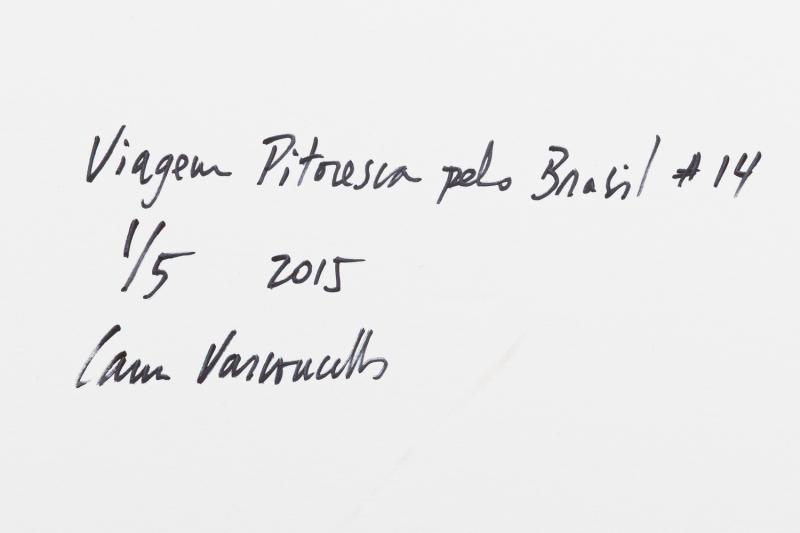 Viagem Pitoresca pelo Brasil #14
1/5 2015
Cássio Vasconcellos